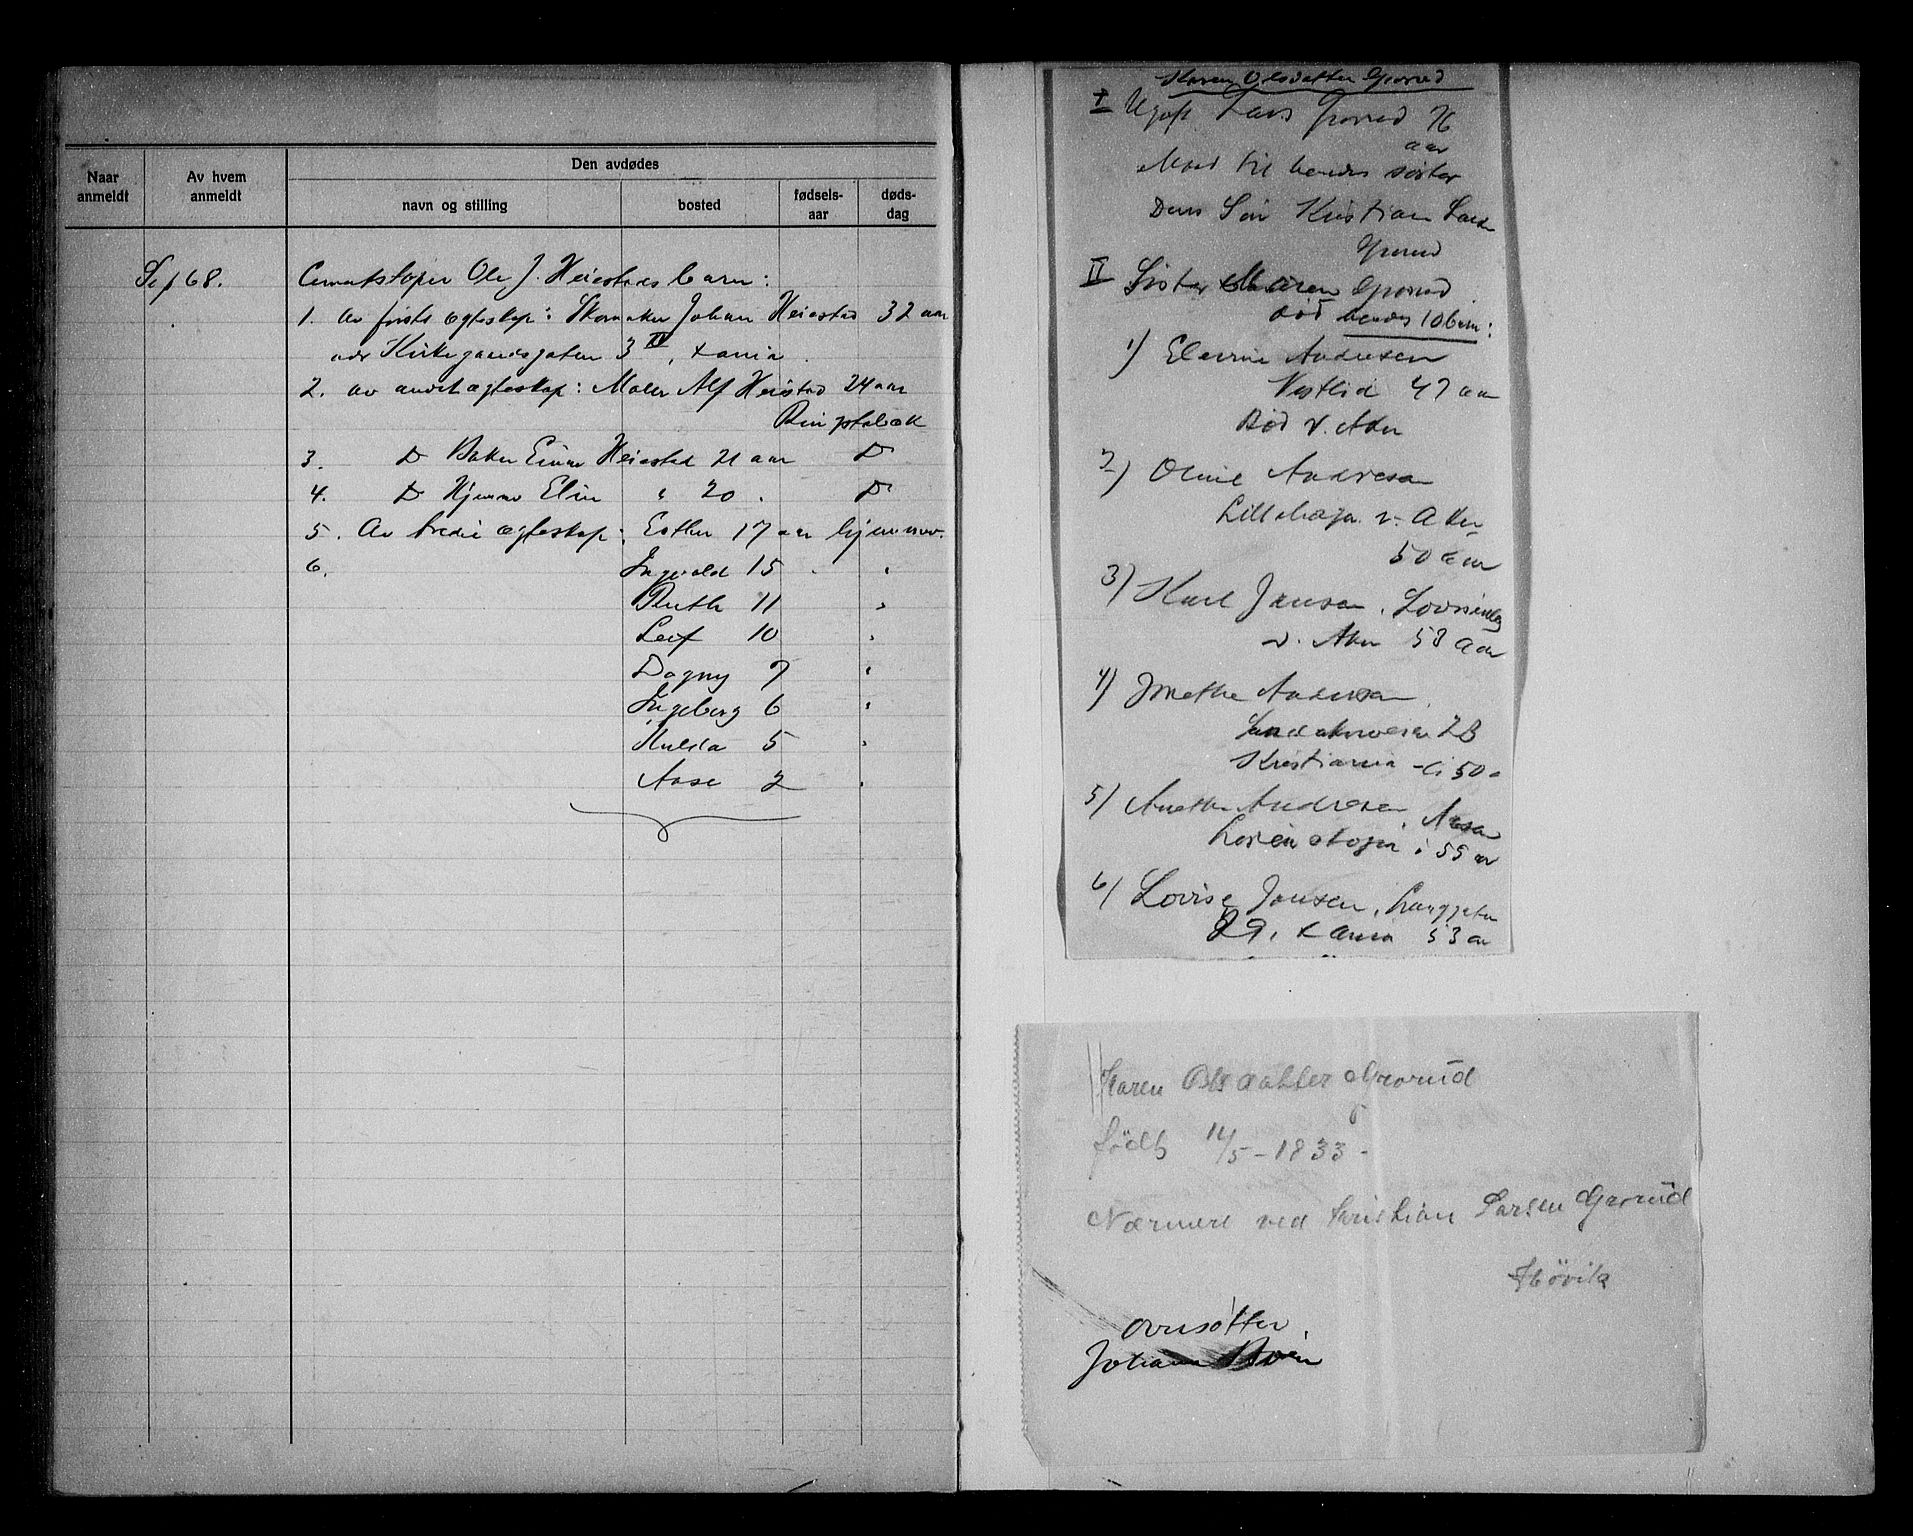 Naar anmeldt
Av hvem anmeldt
Den avdødes
navn og stilling
bosted
fødsels-aar
døds-dag
Se p 68.
Cementstøper Ole J. Heiestads barn:
1. Av første ægteskap: Skomaker Johan Heiestad 32 aar
adr Kirkegaardsgaten 3 IV, Xania.
2. av andet ægteskap: Maler Alf Heiestad 24 aar
Ringstabæk
3. Do Baker Einar Heiestad 21 aar Do
4. Do Hjemme Elin " 20. Do
5. Av tredie ægteskap: Esther 17 aar hjemmev.
6. Ingvald 15 "
Ruth 11 "
Leif 10 "
Dagny 7 "
Ingeborg 6 "
Hulda 5 "
Aase 2 "
Karen Olsdatter Grorud
I Ugift Lars Grorud 76
aar
Mand til hendes søster
Dens Søn Kristian Larsen
Grorud
II Søster Maren Grorud
død hendes 10 barn:
1) Andresen
47 aar
v. Aker
2) Oline Andresen
v. Aker
50 aar
3) Karl Jansen,
v. Aker 58 aar
4) Andersen
Sandakerveien 2B
Kristiania 50
5) Anethe Andresen,
55 aar
6) Lovise Jansen, Langgaten
29, Xania 53 aar
Karen Olsdatter Grorud
født 14/5 - 1833 -
Nærmere ved Kristian Larsen Grorud
Høvik
oversøster
Johanne